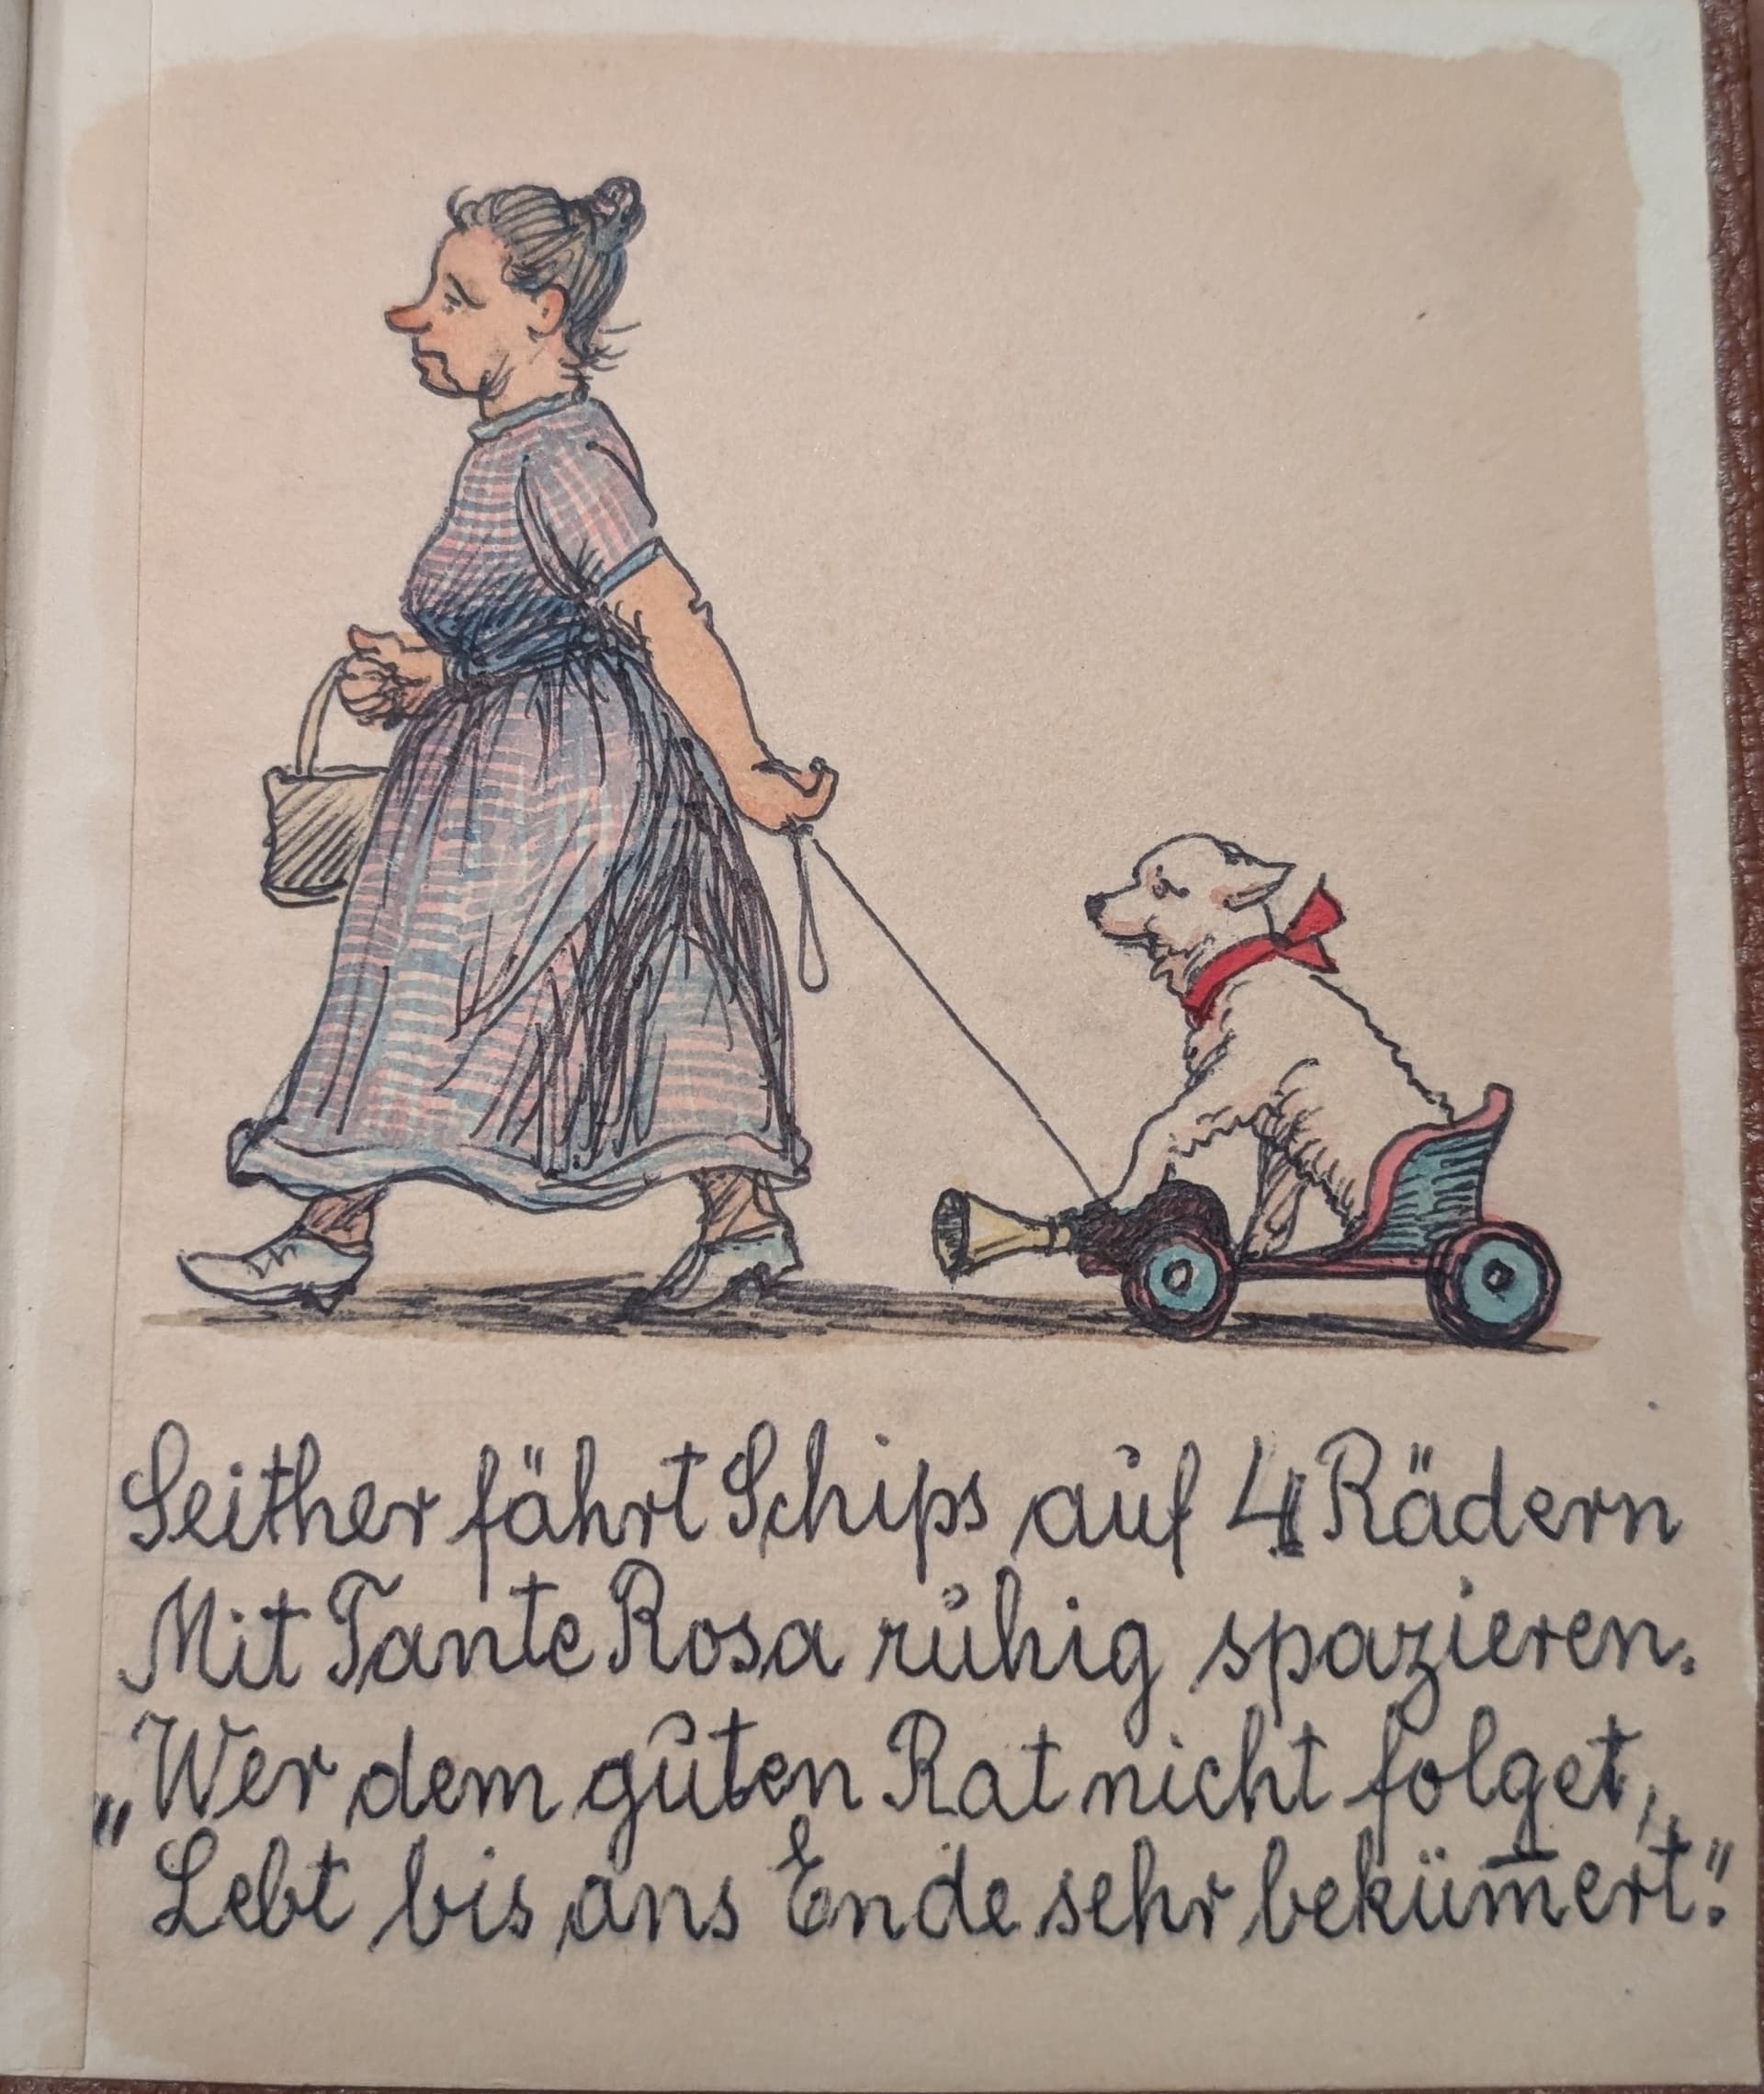 Seither fährt Schips auf 4 Rädern
Mit Tante Rosa ruhig spazieren.
„Wer dem guten Rat nicht folget,
Lebt bis ans Ende sehr beküm̄ert."